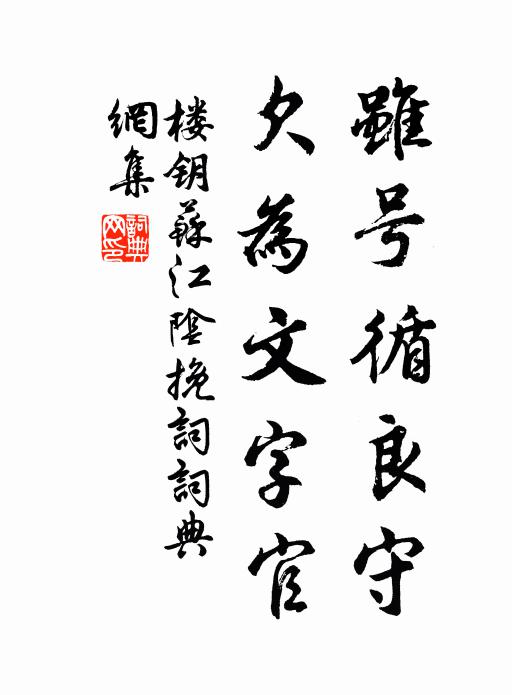 雖号循良守
欠為文字官
楼钥蘇江陰挽詞詞典
網集
詞典
网印